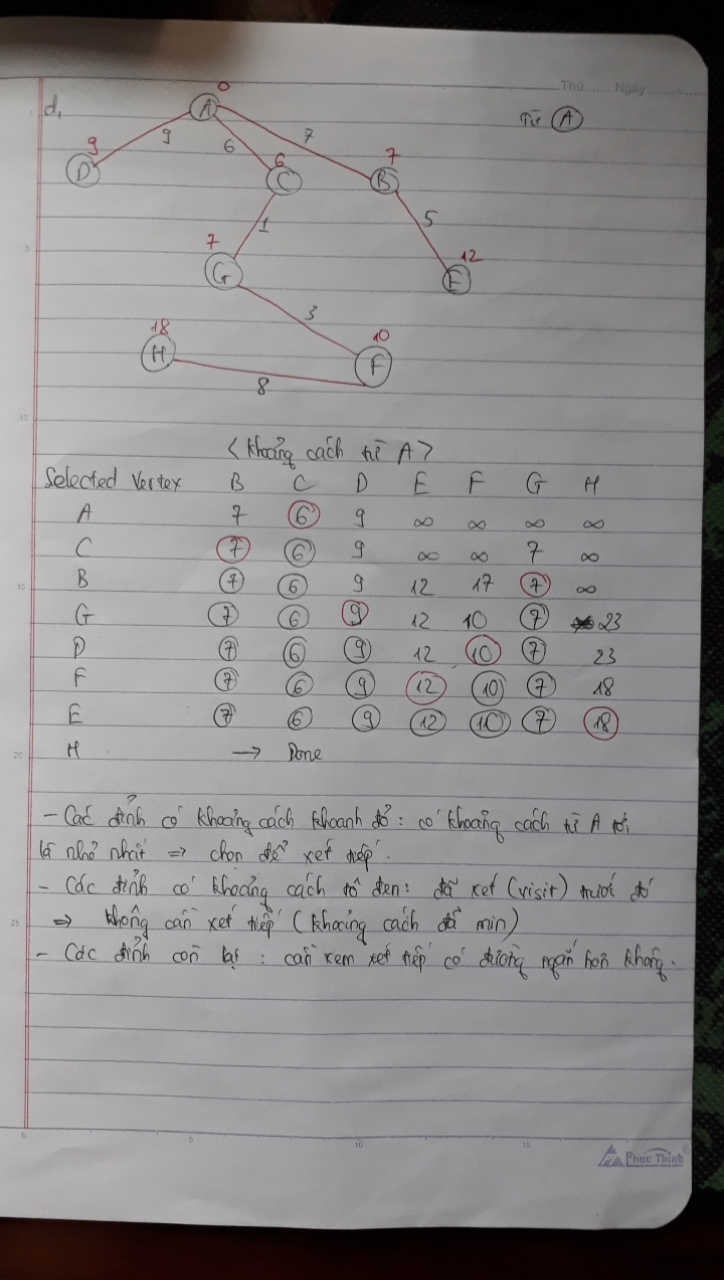 Thứ ...... Ngày ......
d, 0 A Từ A
9 9 6 7 7
D 6 C B
1 5
7 G 12 E
3
18 H 10 F
8
<Khoảng cách từ A>
Selected Vertex B C D E F G H
A 7 6 9 ∞ ∞ ∞ ∞
C 7 6 9 ∞ ∞ 7 ∞
B 7 6 9 12 17 7 ∞
G 7 6 9 12 10 7 23
D 7 6 9 12 10 7 23
F 7 6 9 12 10 7 18
E 7 6 9 12 10 7 18
H → Done
- Các đỉnh có khoảng cách khoanh đỏ : có khoảng cách từ A tới
là nhỏ nhất ⇒ chọn để xét tiếp.
- Các đỉnh có khoảng cách tô đen : đã xét (visit) trước đó
⇒ không cần xét tiếp (khoảng cách đã min)
- Các đỉnh còn lại : cần xem xét tiếp có đường ngắn hơn không.
0 5 10 15
Phuc Thinh